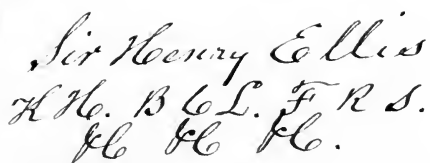 Sir Henry Ellis
K H. B C L. F R S.
&c &c &c.